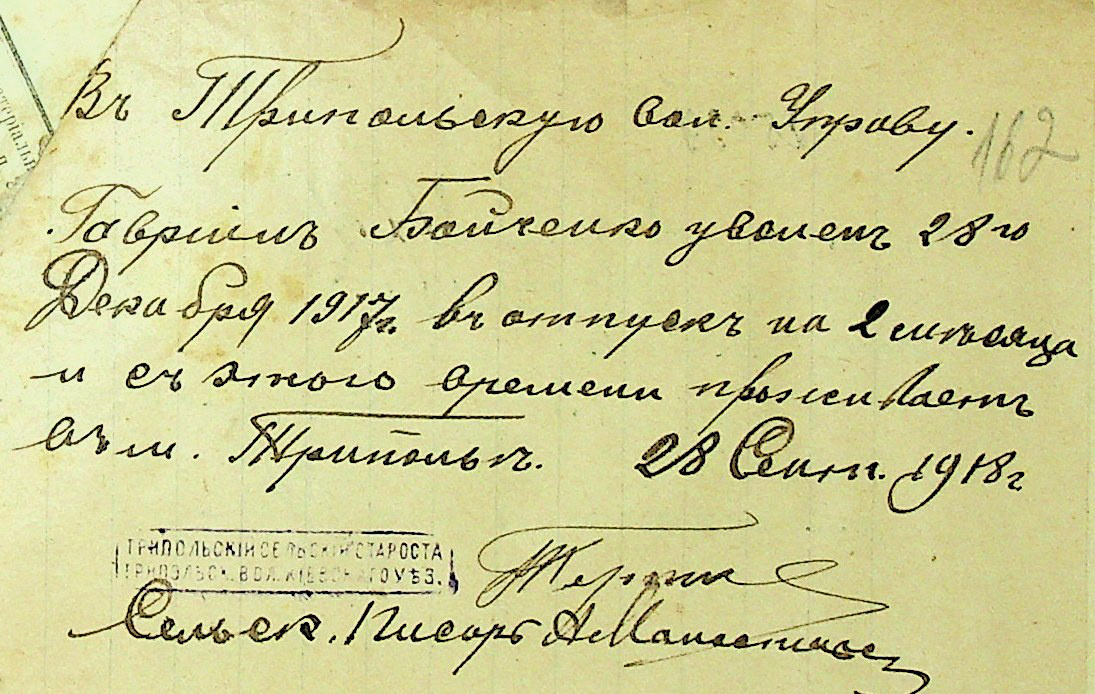 Въ Трипольскую вол. Управу.
162
Гавріилъ Бойченко уволенъ 28го
Декабря 1917г. въ отпускъ на 2 мѣсяца
и съ этого времени проживаетъ
въ м. Трипольѣ. 28 Сент. 1918г
ТРИПОЛЬСКІЙ СЕЛЬСКІЙ СТАРОСТА
ТРИПОЛЬСК. ВОЛ. КІЕВСКАГО УѢЗ.
Сельск. Писарь